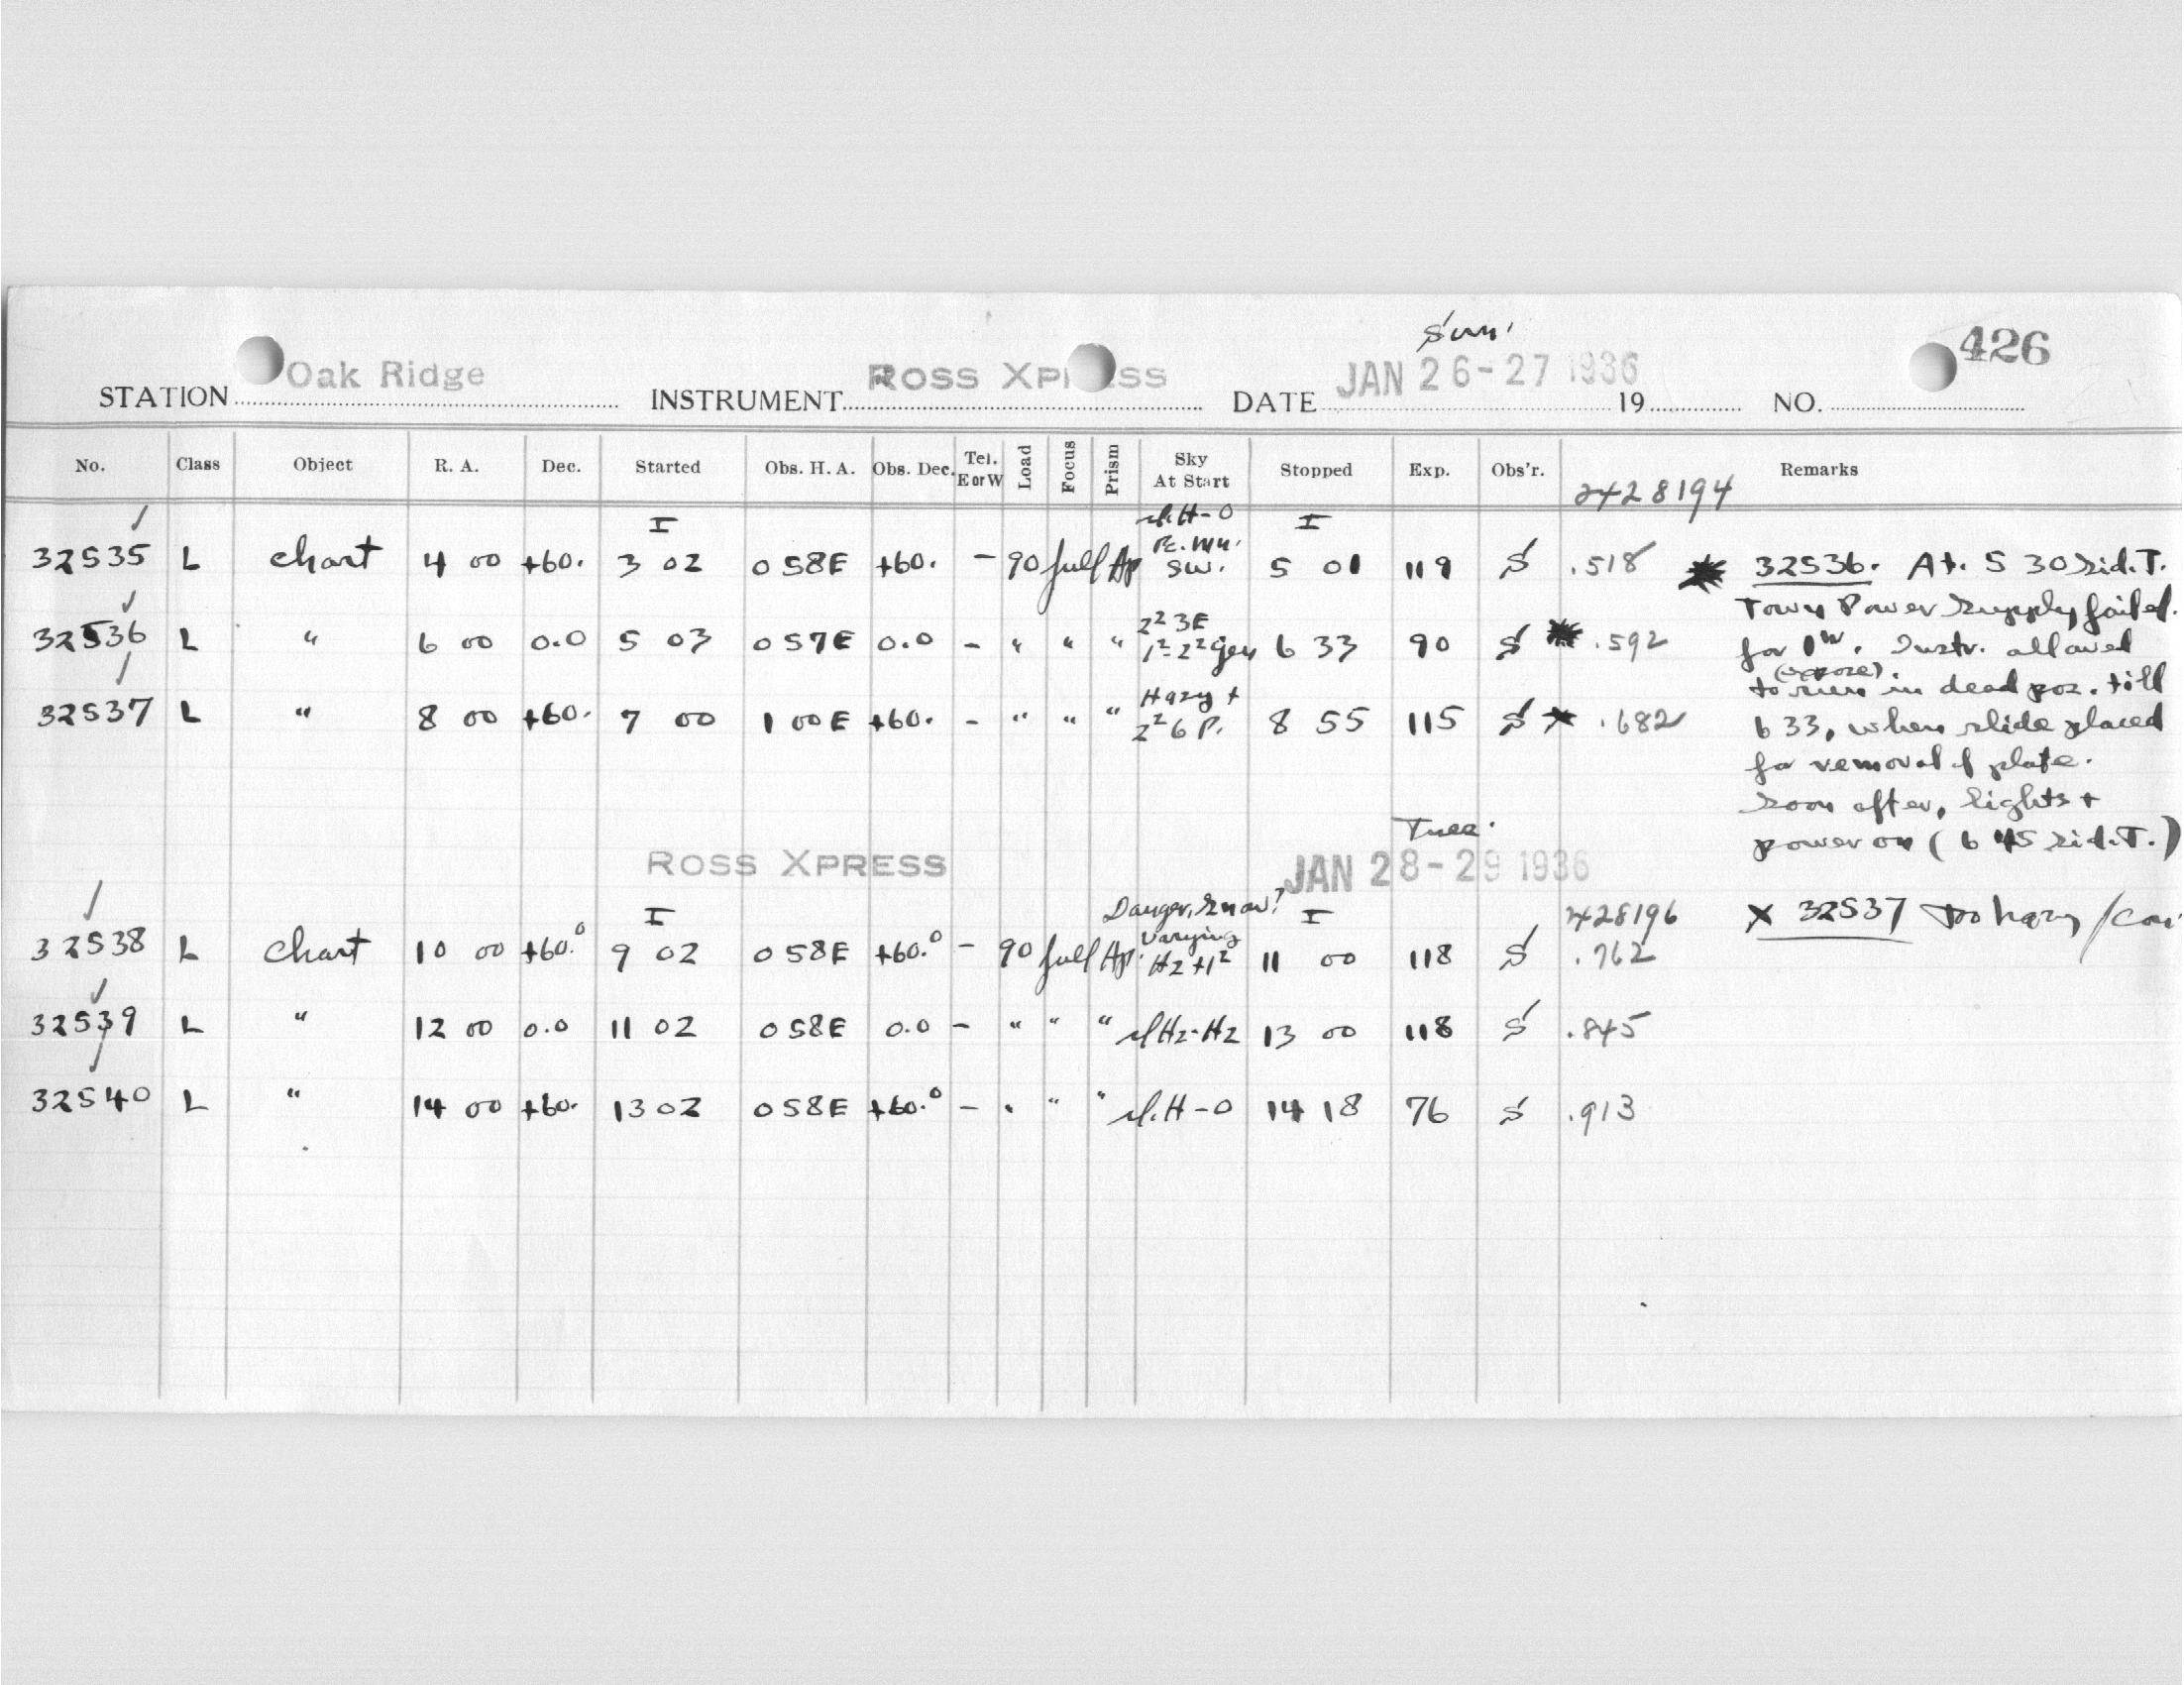 Sun.
426
STATION Oak Ridge INSTRUMENT ROSS XPRESS DATE JAN 26-27 1936 19 NO.
No. Class Object R. A. Dec. Started Obs. H. A. Obs. Dec. Tel. E or W Load Focus Prism Sky At Start Stopped Exp. Obs'r. Remarks
2428194
32535 L Chart 4 00 +60. I 3 02 0 58E +60. - 90 full Ap sl.H-0 SW. I 5 01 119 S .518
32536 L " 6 00 0.0 5 03 0 57E 0.0 - " " " 2² 3E 1²-2² gen 6 33 90 S .592
32537 L " 8 00 +60. 7 00 1 00E +60. - " " " Hazy + 2² 6 P. 8 55 115 S × .682
32536. At. 5 30 Sid.T.
Town Power Supply failed.
for 1ᴴ. Instr. allowed
(expose)
to run in dead pos. till
6 33, when slide placed
for removal of plate.
Soon after, lights +
power on (6 45 Sid.T.)
Tues.
ROSS XPRESS JAN 28-29 1936
× 32537 Too hazy
2428196
32538 L Chart 10 00 +60.° I 9 02 0 58E +60.° - 90 full Ap. Danger, Snow? Varying Hz +1² I 11 00 118 S .762
32539 L " 12 00 0.0 11 02 0 58E 0.0 - " " " sl Hz-Hz 13 00 118 S .845
32540 L " 14 00 +60. 13 02 0 58E +60.° - " " " sl.H-0 14 18 76 S .913